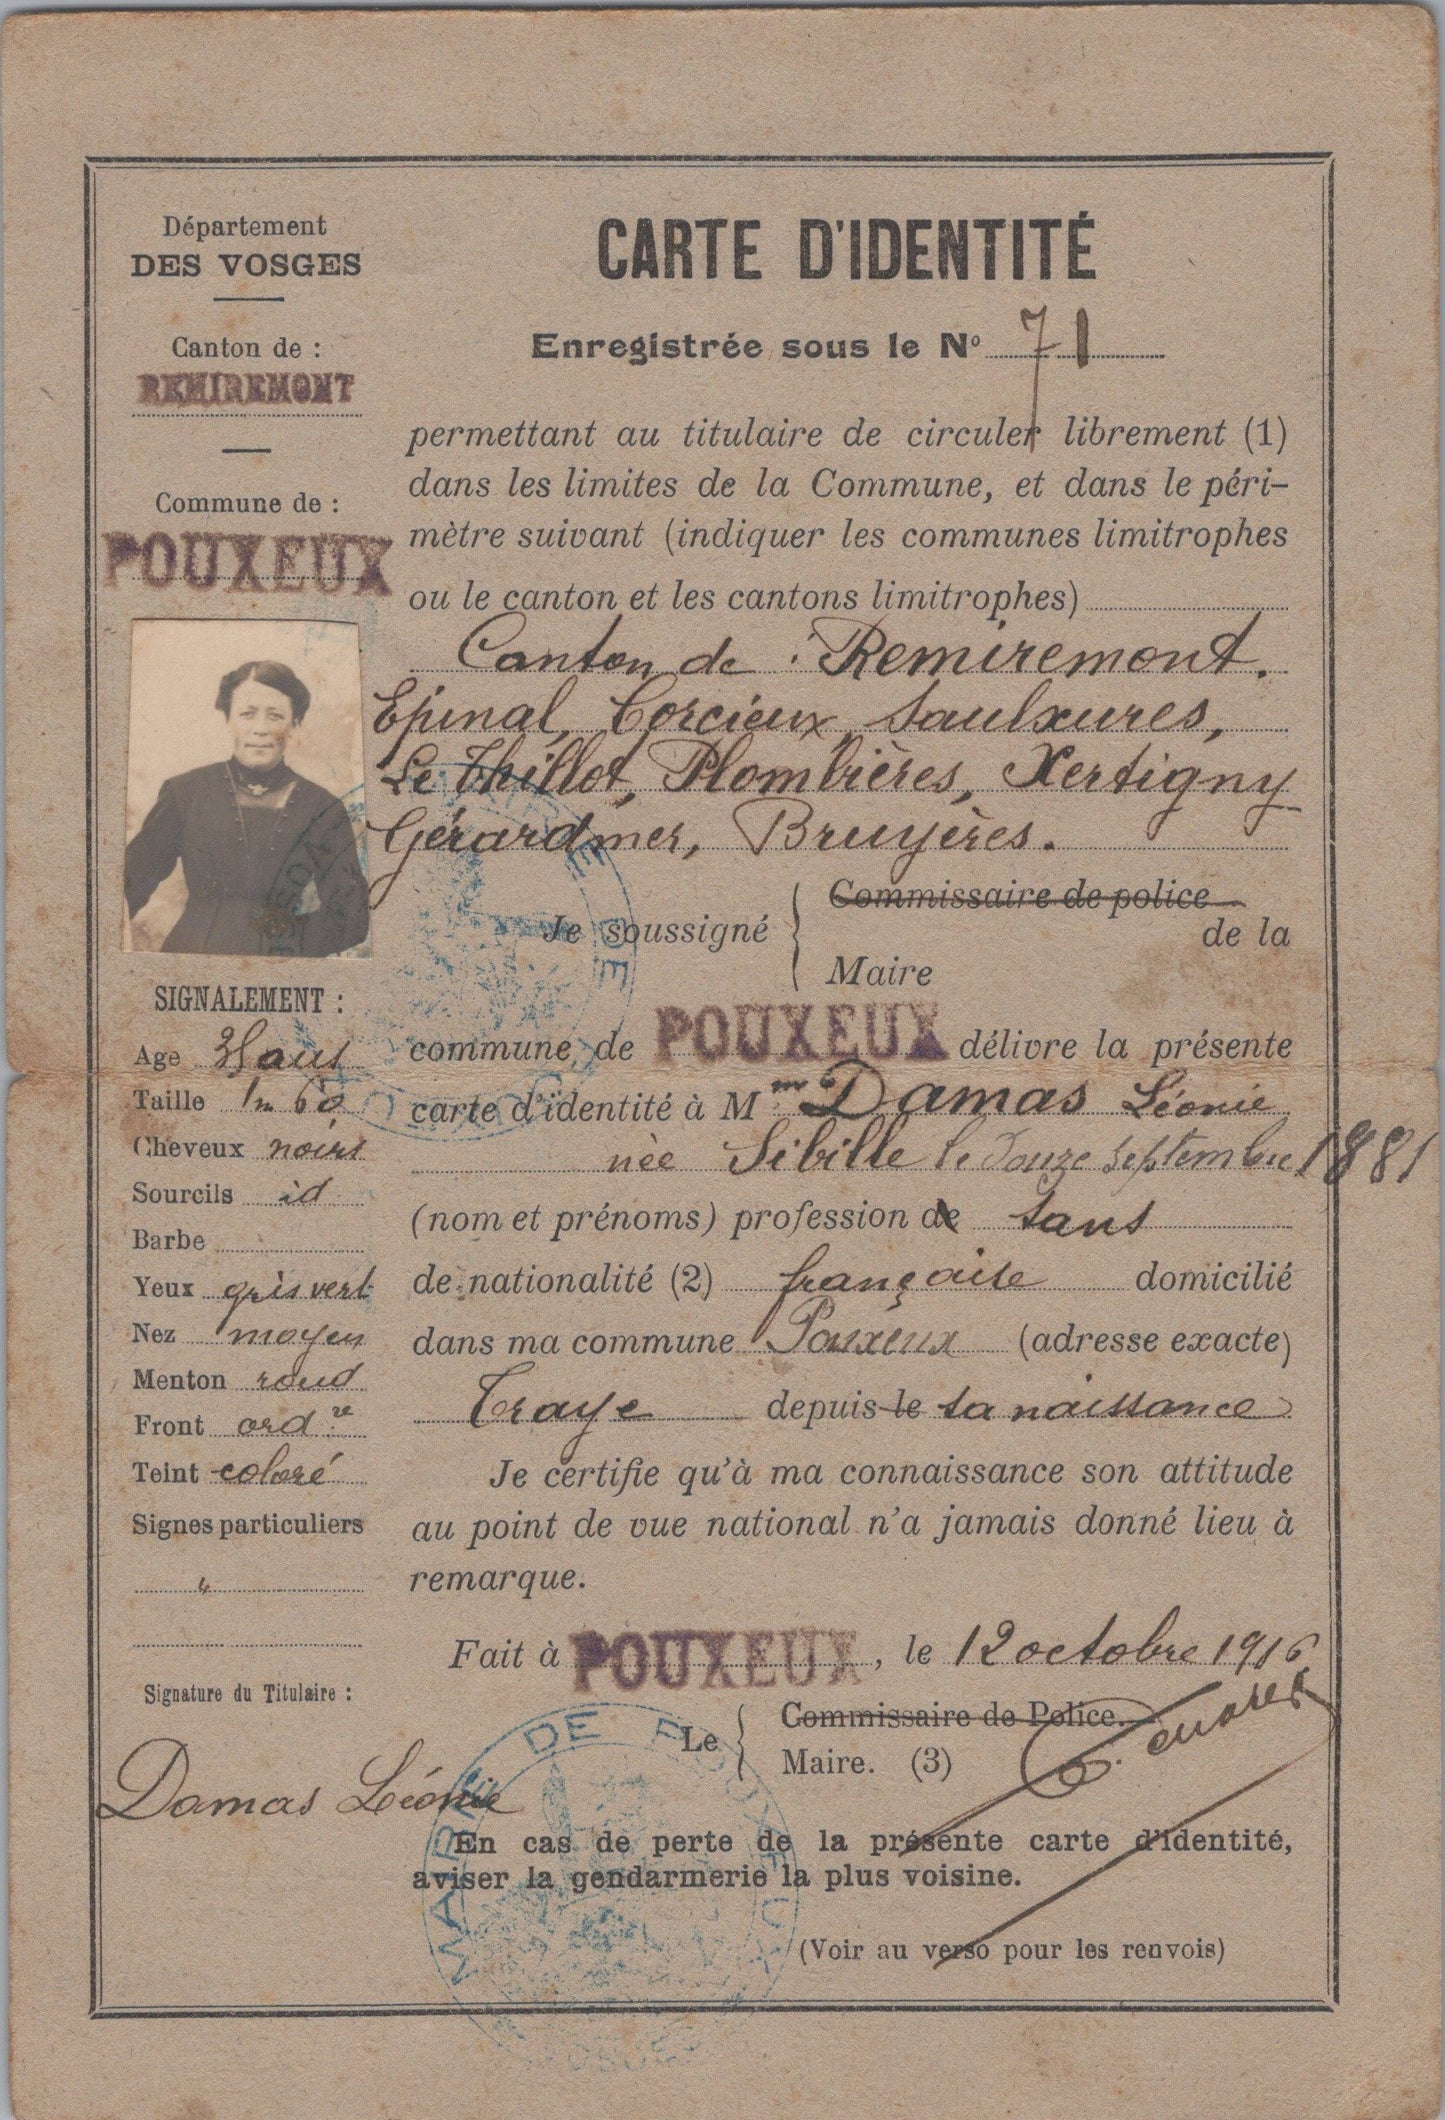 Département
DES VOSGES
Canton de :
REMIREMONT
Commune de :
POUXEUX
SIGNALEMENT :
Age ans
Taille 1m 60
Cheveux noirs
Sourcils id
Barbe
Yeux gris vert
Nez moyen
Menton rond
Front ord re
Teint coloré
Signes particuliers
"
Signature du Titulaire :
Damas Léonie
CARTE D'IDENTITÉ
Enregistrée sous le No 71
permettant au titulaire de circuler librement (1)
dans les limites de la Commune, et dans le péri-
mètre suivant (indiquer les communes limitrophes
ou le canton et les cantons limitrophes)
Canton de Remiremont.
Epinal, Corcieux, Saulxures,
Le Thillot, Plombières, Xertigny
Gérardmer, Bruyères.
Commissaire de police
Je soussigné de la
Maire
commune de POUXEUX délivre la présente
carte d'identité à Mme Damas Léonie
née Sibille le douze septembre 1881
(nom et prénoms) profession de sans
de nationalité (2) française domicilié
dans ma commune Pouxeux (adresse exacte)
Traye depuis le sa naissance
Je certifie qu'à ma connaissance son attitude
au point de vue national n'a jamais donné lieu à
remarque.
Fait à POUXEUX, le 12 octobre 1916
Commissaire de Police.
Le
Maire. (3)
MAIRIE DE POUXEUX
En cas de perte de la présente carte d'identité,
aviser la gendarmerie la plus voisine.
(Voir au verso pour les renvois)